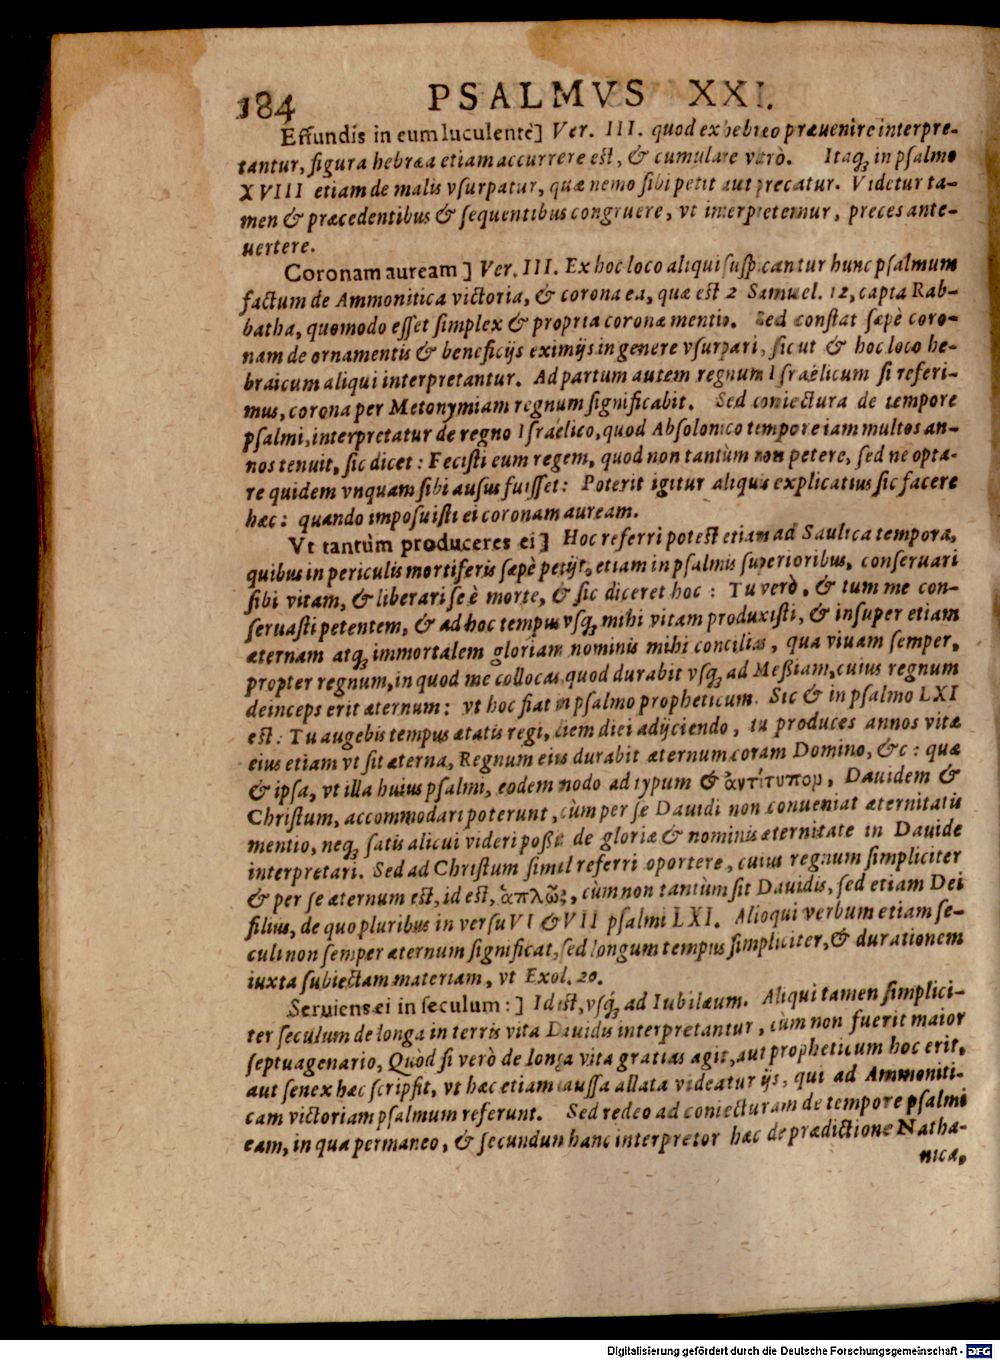 184 PSALMVS XXI.
Effundis in eum luculentè] Ver. III. quod ex hebræo præuenire interpre-
tantur, figura hebræa etiam accurrere est, & cumulare verò. Itaqꝫ in psalmo
XVIII etiam de malis vsurpatur, quæ nemo sibi petit aut precatur. Videtur ta-
men & præcedentibus & sequentibus congruere, vt interpretemur, preces ante-
uertere.
Coronam auream] Ver. III. Ex hoc loco aliqui suspicantur hunc psalmum
factum de Ammonitica victoria, & corona ea, quæ est 2 Samuel. 12, capta Rab-
batha, quomodo esset simplex & propria coronæ mentio. Sed constat sæpè coro-
nam de ornamentis & beneficijs eximijs in genere vsurpari, sicut & hoc loco he-
braicum aliqui interpretantur. Ad partum autem regnum Israëlicum si referi-
mus, corona per Metonymiam regnum significabit. Sed coniectura de tempore
psalmi, interpretatur de regno Israëlico, quod Absolonico tempore iam multos an-
nos tenuit, sic dicet: Fecisti eum regem, quod non tantùm non petere, sed ne opta-
re quidem vnquam sibi ausus fuisset: Poterit igitur aliquis explicatius sic facere
hæc: quando imposuisti ei coronam auream.
Vt tantùm produceres ei] Hoc referri potest etiam ad Saulica tempora,
quibus in periculis mortiferis sæpè petijt, etiam in psalmis superioribus, conseruari
sibi vitam, & liberari se è morte, & sic diceret hoc: Tu verò, & tum me con-
seruasti petentem, & ad hoc tempus vsqꝫ mihi vitam produxisti, & insuper etiam
æternam atqꝫ immortalem gloriam nominis mihi concilias, qua viuam semper,
propter regnum, in quod me collocas, quod durabit vsqꝫ ad Meßiam, cuius regnum
deinceps erit æternum: vt hoc fiat in psalmo propheticum. Sic & in psalmo LXI
est: Tu augebis tempus ætatis regi, diem diei adijciendo, tu produces annos vitæ
eius etiam vt sit æterna, Regnum eius durabit æternum coram Domino, &c: quæ
& ipsa, vt illa huius psalmi, eodem modo ad typum & ἀντίτυπον, Dauidem &
Christum, accommodari poterunt, cùm per se Dauidi non conueniat æternitatis
mentio, neqꝫ satis alicui videri poßit de gloriæ & nominis æternitate in Dauide
interpretari. Sed ad Christum simul referri oportere, cuius regnum simpliciter
& per se æternum est, id est, ἁπλῶς, cùm non tantùm sit Dauidis, sed etiam Dei
filius, de quo pluribus in versu VI & VII psalmi LXI. Alioqui verbum etiam se-
culi non semper æternum significat, sed longum tempus simpliciter, & durationem
iuxta subiectam materiam, vt Exod. 20.
Seruiens ei in seculum:] Id est, vsqꝫ ad Iubilæum. Aliqui tamen simplici-
ter seculum de longa in terris vita Dauidis interpretantur, cùm non fuerit maior
septuagenario, Quòd si verò de longa vita gratias agit, aut propheticum hoc erit,
aut senex hæc scripsit, vt hæc etiam caussa allata videatur ijs, qui ad Ammoniti-
cam victoriam psalmum referunt. Sed redeo ad coniecturam de tempore psalmi
eam, in qua permaneo, & secundun hanc interpretor hæc de prædictione Natha-
nica,
Digitalisierung gefördert durch die Deutsche Forschungsgemeinschaft - DFG